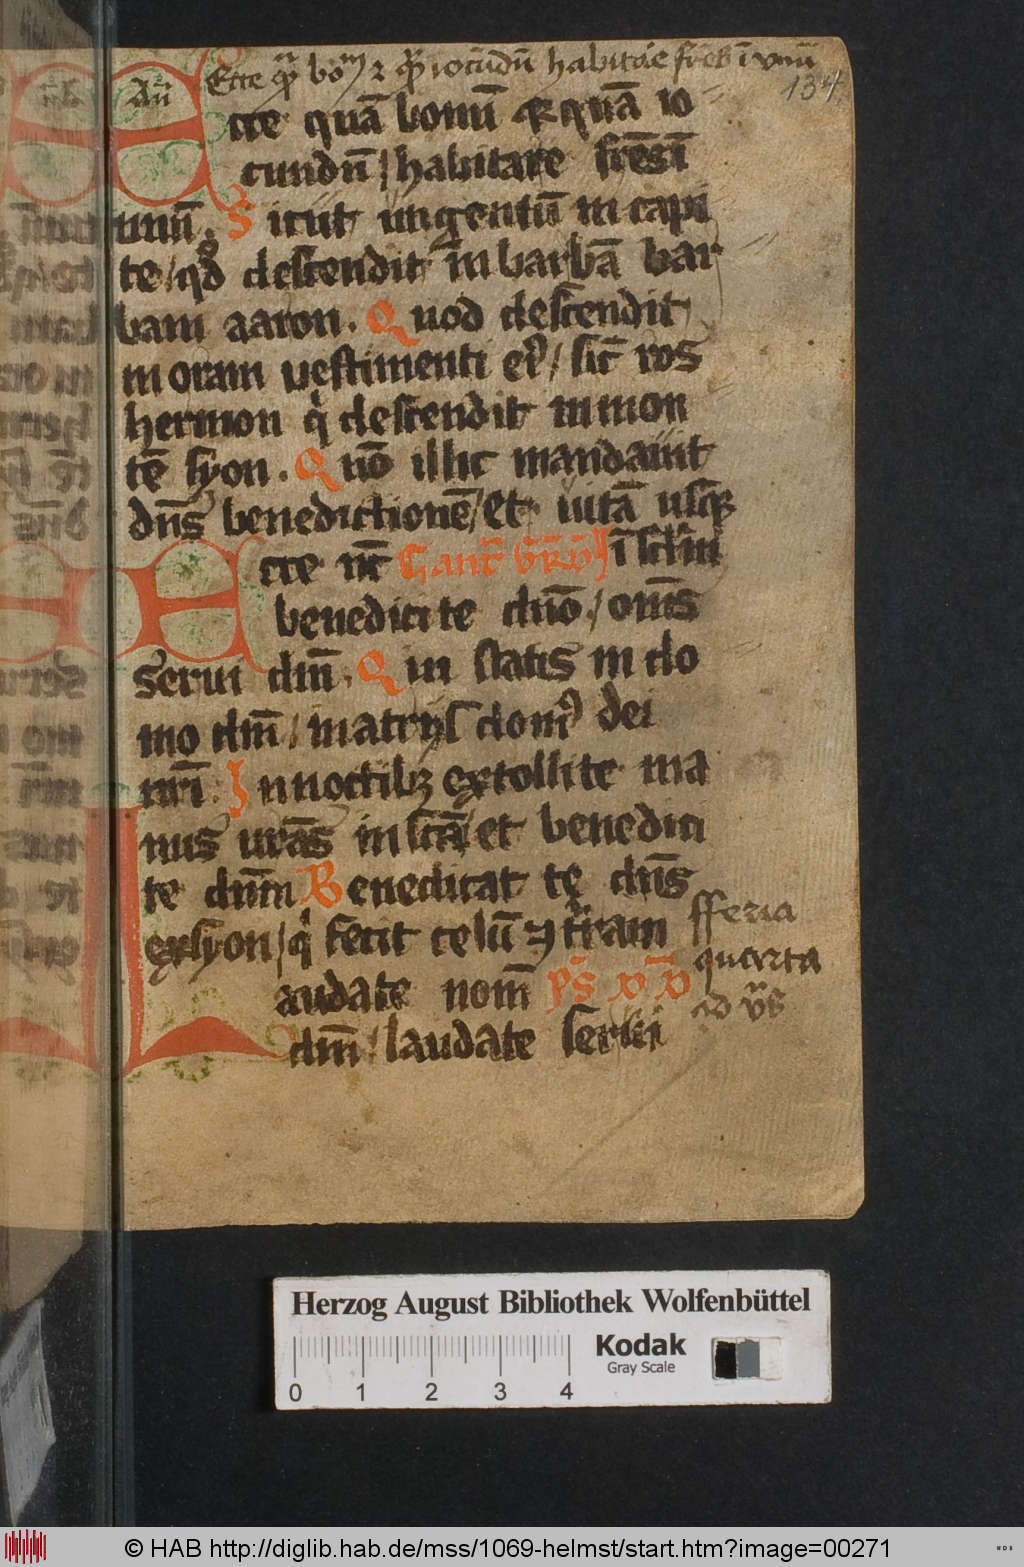 Ecce qͣ bonͫ ⁊ qͣ iocūdū habitare fr̄es ī vnū
134
Añ
Ecce quā bonū et quā io
cundū / habitare fr̄es ī
unū. Sicut ungentū in capi
te / qd̄ descendit in barbā bar
bam aaron. Quod descendit
in oram uestimenti eiꝰ / sic̄ ros
hermon qͥ descendit in mon
tē syon. Quō illic mandauit
dn̄s benedictionē / et uitā usqꝫ
ī sc̄lm
Ecce nc̄ Cant̄
benedicite dn̄o / om̄s
serui dn̄i. Qui statis in do
mo dn̄i / in atrijs domꝰ dei
nr̄i. In noctibꝫ extollite ma
nus ur̄as in sc̄a / et benedici
te dn̄m Benedicat te dn̄s
ex syon / qͥ fecit celū ⁊ t̄ram
fferia
quarta
ad
Laudate nom̄ ps̄
dn̄i / laudate serui
Herzog August Bibliothek Wolfenbüttel
Kodak
Gray Scale
0 1 2 3 4
© HAB http://diglib.hab.de/mss/1069-helmst/start.htm?image=00271